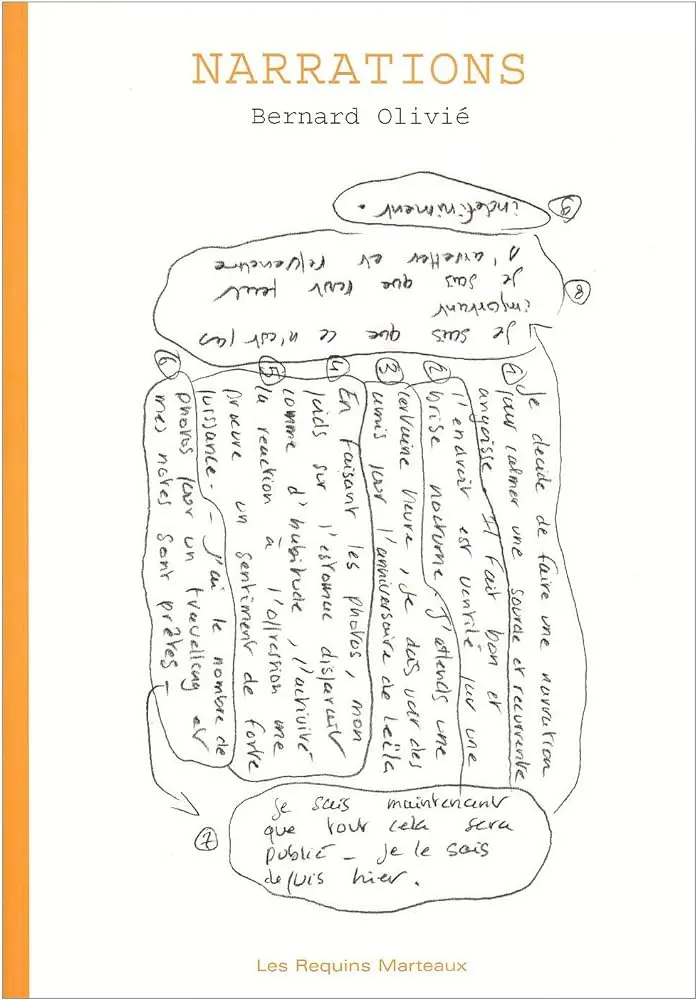 NARRATIONS
Bernard Olivié
1 Je decide de faire une narration
pour calmer une sourde et recurrente
angoisse. Il fait bon et
2 l'endroit est ventilé par une
brise nocturne. J'attends une
3 certaine heure, je dois voir des
amis pour l'anniversaire de Leïla
4 En faisant les photos, mon
poids sur l'estomac disparait
comme d'habitude, l'activité
5 la reaction à l'oppression me
procure un sentiment de forte
puissance - J'ai le nombre de
6 photos pour un travelling et
mes notes sont prêtes -
7 je sais maintenant
que tout cela sera
publié - je le sais
depuis hier.
8 Je sais que ce n'est pas
important
je sais que tout peut
s'arretter et reprendre
9 indefiniment.
Les Requins Marteaux